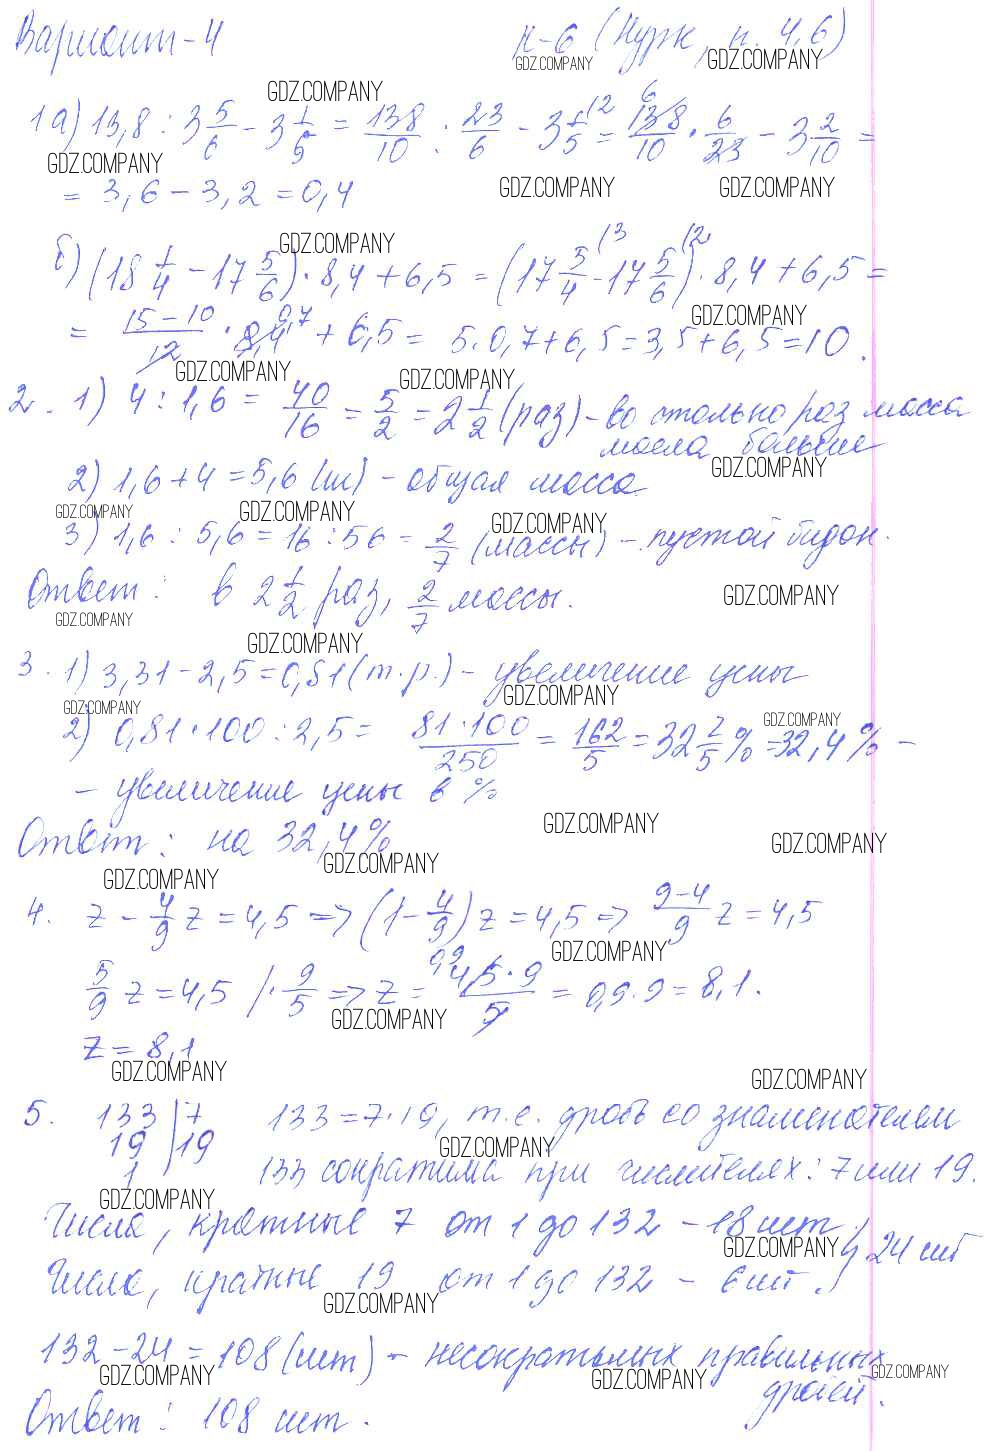 Вариант-4 К-6 (Нурк, п. 4,6)
1 а) 13,8 : 3 5/6 - 3 1/5 = 138/10 : 23/6 - 3 1/5 = 138/10 · 6/23 - 3 2/10 =
= 3,6 - 3,2 = 0,4
б) (18 1/4 - 17 5/6) · 8,4 + 6,5 = (17 5/4 - 17 5/6) · 8,4 + 6,5 =
= (15-10)/12 · 8,4 + 6,5 = 5 · 0,7 + 6,5 = 3,5 + 6,5 = 10.
2. 1) 4 : 1,6 = 40/16 = 5/2 = 2 1/2 (раз) - во столько раз масса
масла больше
2) 1,6 + 4 = 5,6 (кг) - общая масса
3) 1,6 : 5,6 = 16 : 56 = 2/7 (массы) - пустой бидон.
Ответ: в 2 1/2 раз, 2/7 массы.
3. 1) 3,31 - 2,5 = 0,81 (т.р.) - увеличение цены
2) 0,81 · 100 : 2,5 = 81·100/250 = 162/5 = 32 2/5 % = 32,4 % -
- увеличение цены в %
Ответ: на 32,4%
4. z - 4/9 z = 4,5 => (1 - 4/9) z = 4,5 => (9-4)/9 z = 4,5
5/9 z = 4,5 / · 9/5 => z = 4,5·9/5 = 0,9·9 = 8,1.
z = 8,1
5. 133 | 7 133 = 7·19, т.е. дробь со знаменателем
19 | 19
1 133 сократима при числителях: 7 или 19.
Числа, кратные 7 от 1 до 132 - 18 шт.
24 шт
Числа, кратные 19 от 1 до 132 - 6 шт.
132 - 24 = 108 (шт) - несократимых правильных
дробей.
Ответ: 108 шт.
GDZ.COMPANY